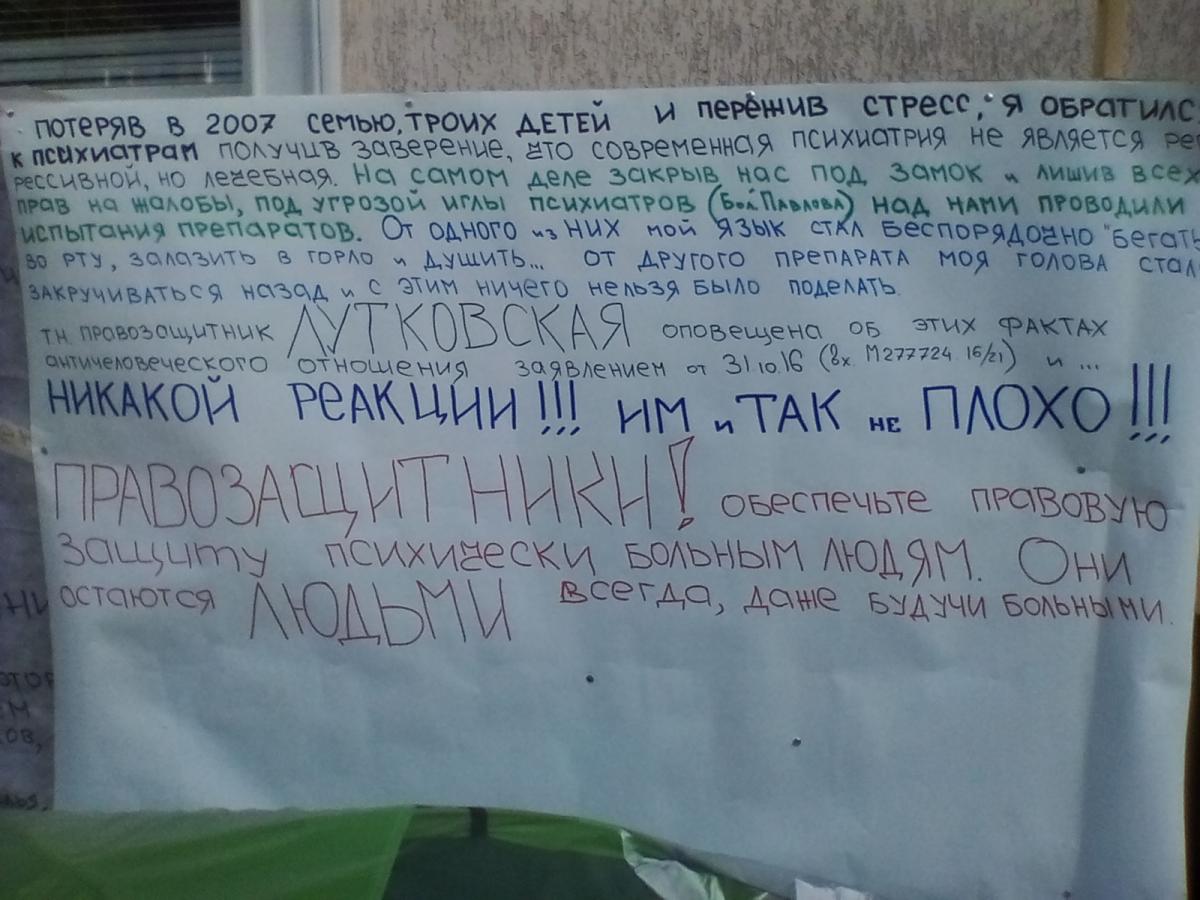 ПОТЕРЯВ В 2007 СЕМЬЮ, ТРОИХ ДЕТЕЙ И ПЕРЕЖИВ СТРЕСС, Я ОБРАТИЛС
К ПСИХИАТРАМ ПОЛУЧИВ ЗАВЕРЕНИЕ, ЧТО СОВРЕМЕННАЯ ПСИХИАТРИЯ НЕ ЯВЛЯЕТСЯ РЕ
РЕССИВНОЙ, НО ЛЕЧЕБНАЯ. НА САМОМ ДЕЛЕ ЗАКРЫВ НАС ПОД ЗАМОК И ЛИШИВ ВСЕХ
ПРАВ НА ЖАЛОБЫ, ПОД УГРОЗОЙ ИГЛЫ ПСИХИАТРОВ (БОЛ. ПАВЛОВА) НАД НАМИ ПРОВОДИЛИ
ИСПЫТАНИЯ ПРЕПАРАТОВ. ОТ ОДНОГО ИЗ НИХ МОЙ ЯЗЫК СТАЛ БЕСПОРЯДОЧНО "БЕГАТЬ
ВО РТУ, ЗАЛАЗИТЬ В ГОРЛО И ДУШИТЬ... ОТ ДРУГОГО ПРЕПАРАТА МОЯ ГОЛОВА СТАЛ
ЗАКРУЧИВАТЬСЯ НАЗАД И С ЭТИМ НИЧЕГО НЕЛЬЗЯ БЫЛО ПОДЕЛАТЬ.
Т.Н. ПРАВОЗАЩИТНИК ЛУТКОВСКАЯ ОПОВЕЩЕНА ОБ ЭТИХ ФАКТАХ
АНТИЧЕЛОВЕЧЕСКОГО ОТНОШЕНИЯ ЗАЯВЛЕНИЕМ ОТ 31.10.16 (ВХ. М277724.16/21) И ...
НИКАКОЙ РЕАКЦИИ!!! ИМ И ТАК НЕ ПЛОХО!!!
ПРАВОЗАЩИТНИКИ! ОБЕСПЕЧЬТЕ ПРАВОВУЮ
ЗАЩИТУ ПСИХИЧЕСКИ БОЛЬНЫМ ЛЮДЯМ. ОНИ
ОСТАЮТСЯ ЛЮДЬМИ ВСЕГДА, ДАЖЕ БУДУЧИ БОЛЬНЫМИ.